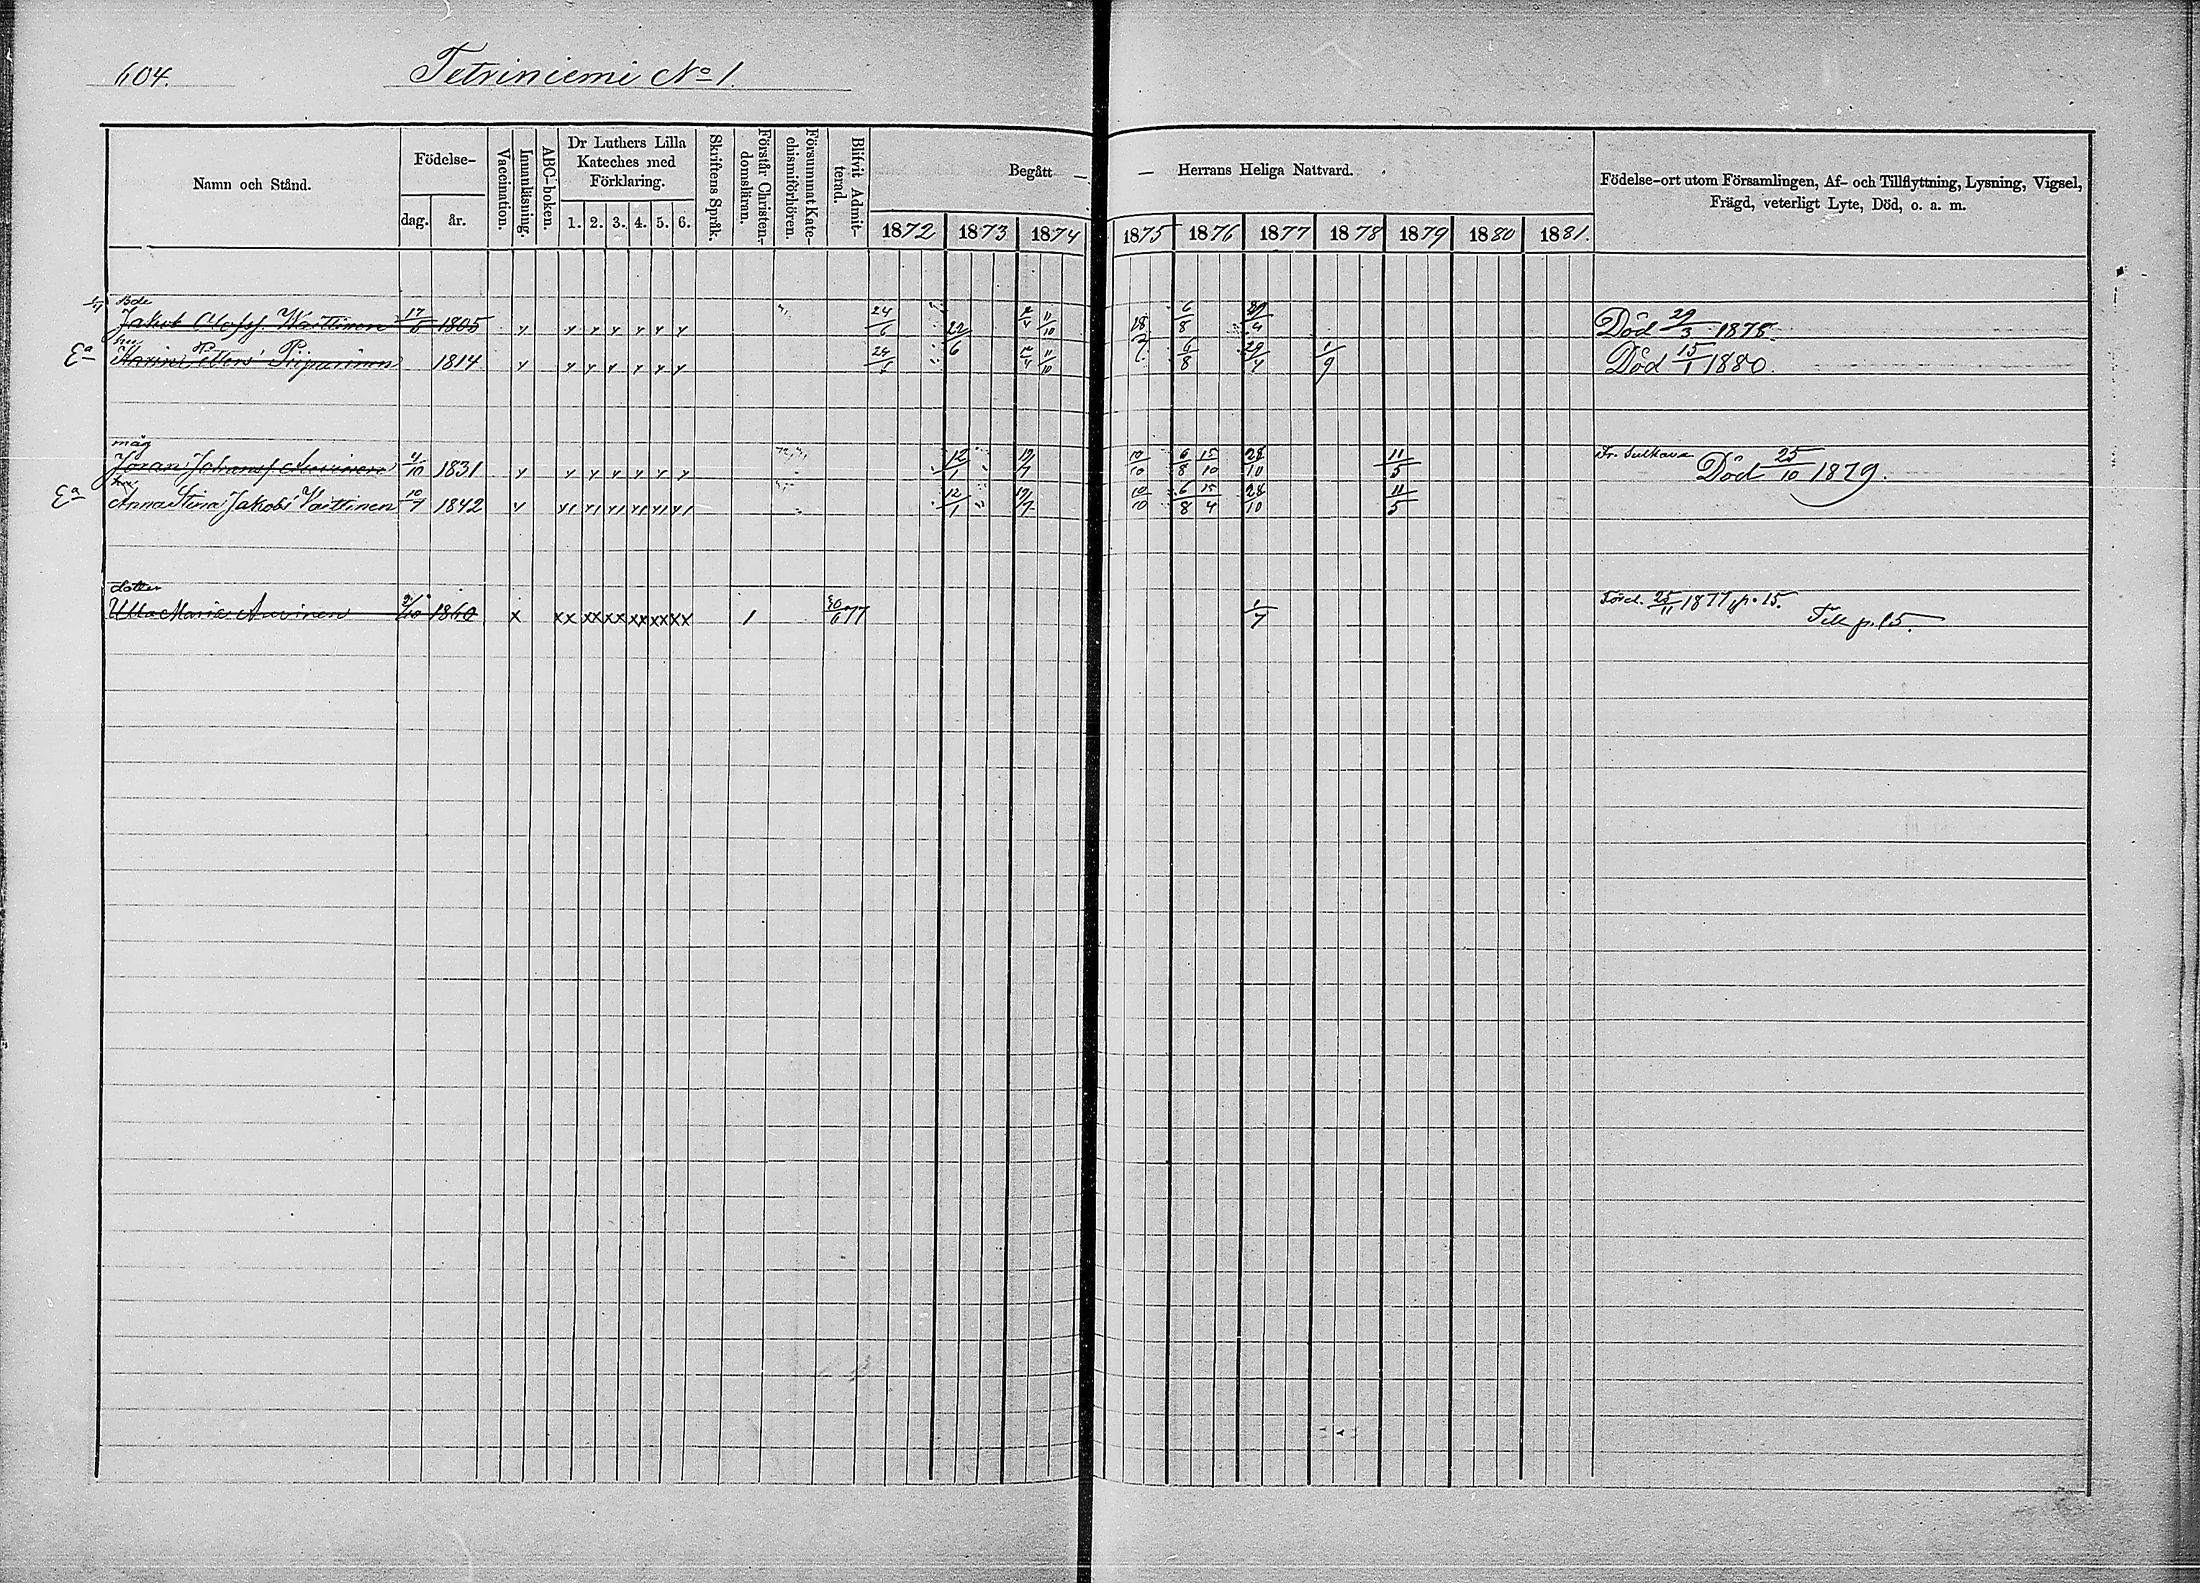 604.
Tetriniemi No 1.
Namn och Stånd.
Födelse-
dag. år.
Vaccination.
Innanläsning.
ABC-boken.
Dr Luthers Lilla
Kateches med
Förklaring.
1. 2. 3. 4. 5. 6.
Skriftens Språk.
Förstår Christen-
domsläran.
Försummat Kate-
chismiförhören.
Blifvit Admit-
terad.
Begått —
— Herrans Heliga Nattvard.
1872 1873 1874
1875 1876 1877 1878 1879 1880 1881.
Födelse-ort utom Församlingen, Af- och Tillflyttning, Lysning, Vigsel,
Frägd, veterligt Lyte, Död, o. a. m.
Bde
Jakob Olofss. Waittinen 17/6 1805 24/6 22/6 11/10 6/8 29/4 Död 29/3 1878.
hu
Ea Petters' Piiparinen 1814 24/6 11/10 6/8 29/4 1/9 Död 15/1 1880.
måg
Jöran Johansf. Auvinen 4/10 1831 12/1 19/7 10/10 6/8 15/10 28/10 11/5 Fr. Sulkava Död 25/10 1879.
hu
Ea Anna Stina Jakobs' Vaittinen 10/7 1842 12/1 19/7 10/10 6/8 15/4 28/10 11/5
dotter
Ulla Maria Auvinen 1860 1 30/6 77 1/7 25/11 1877, p. 15. Till p. 15.